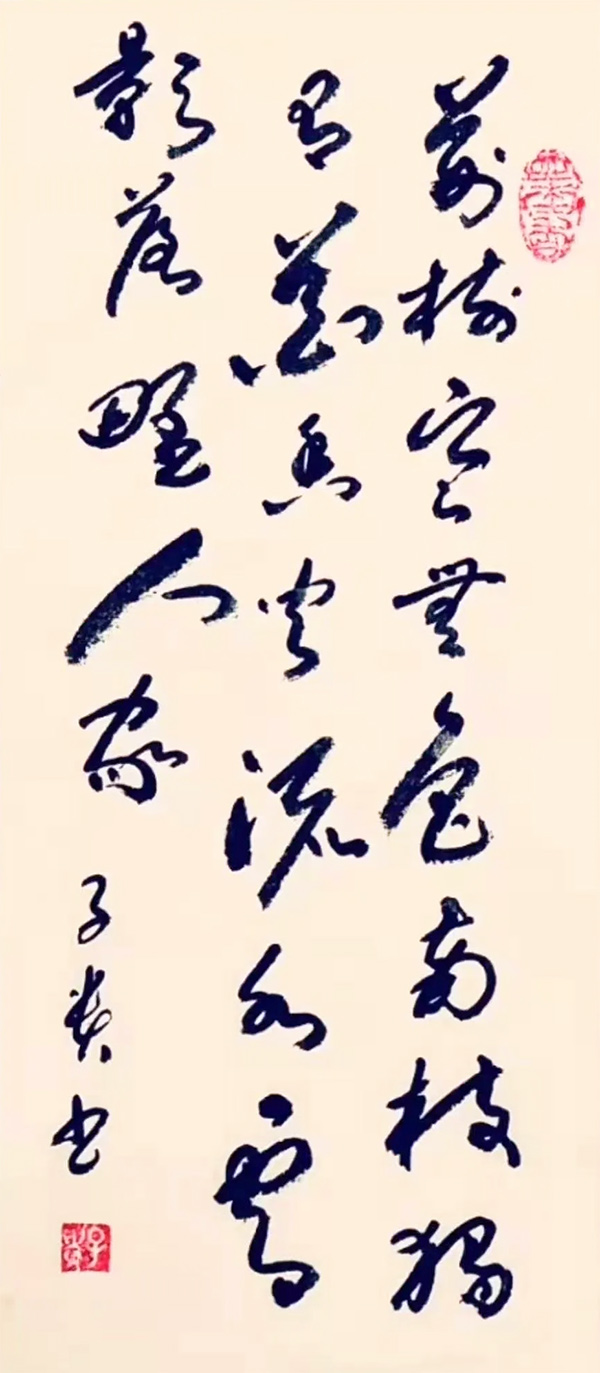 萬樹寒無色南枝獨
有花香聞流水處
影落野人家
子貴书